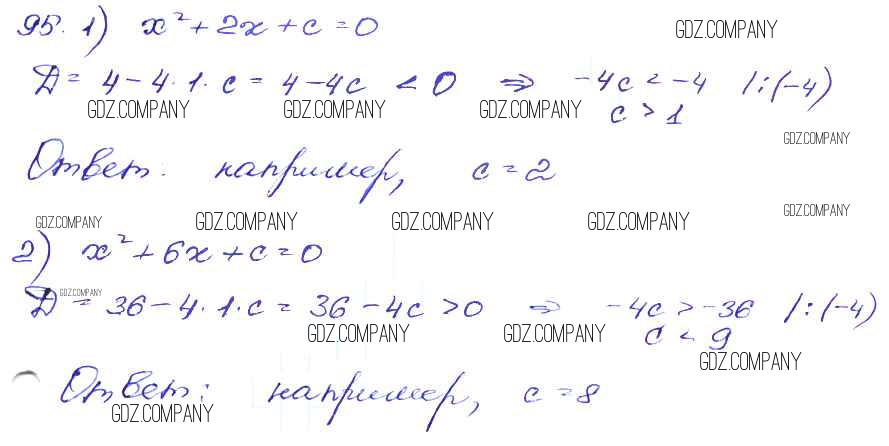 95. 1) x² + 2x + c = 0
GDZ.COMPANY
D = 4 - 4·1·c = 4 - 4c < 0 ⇒ -4c < -4 /:(-4)
GDZ.COMPANY GDZ.COMPANY GDZ.COMPANY c > 1
GDZ.COMPANY
Ответ: например, c = 2
GDZ.COMPANY GDZ.COMPANY GDZ.COMPANY GDZ.COMPANY GDZ.COMPANY
2) x² + 6x + c = 0
GDZ.COMPANY
D = 36 - 4·1·c = 36 - 4c > 0 ⇒ -4c > -36 /:(-4)
GDZ.COMPANY GDZ.COMPANY c < 9
GDZ.COMPANY
Ответ: например, c = 8
GDZ.COMPANY